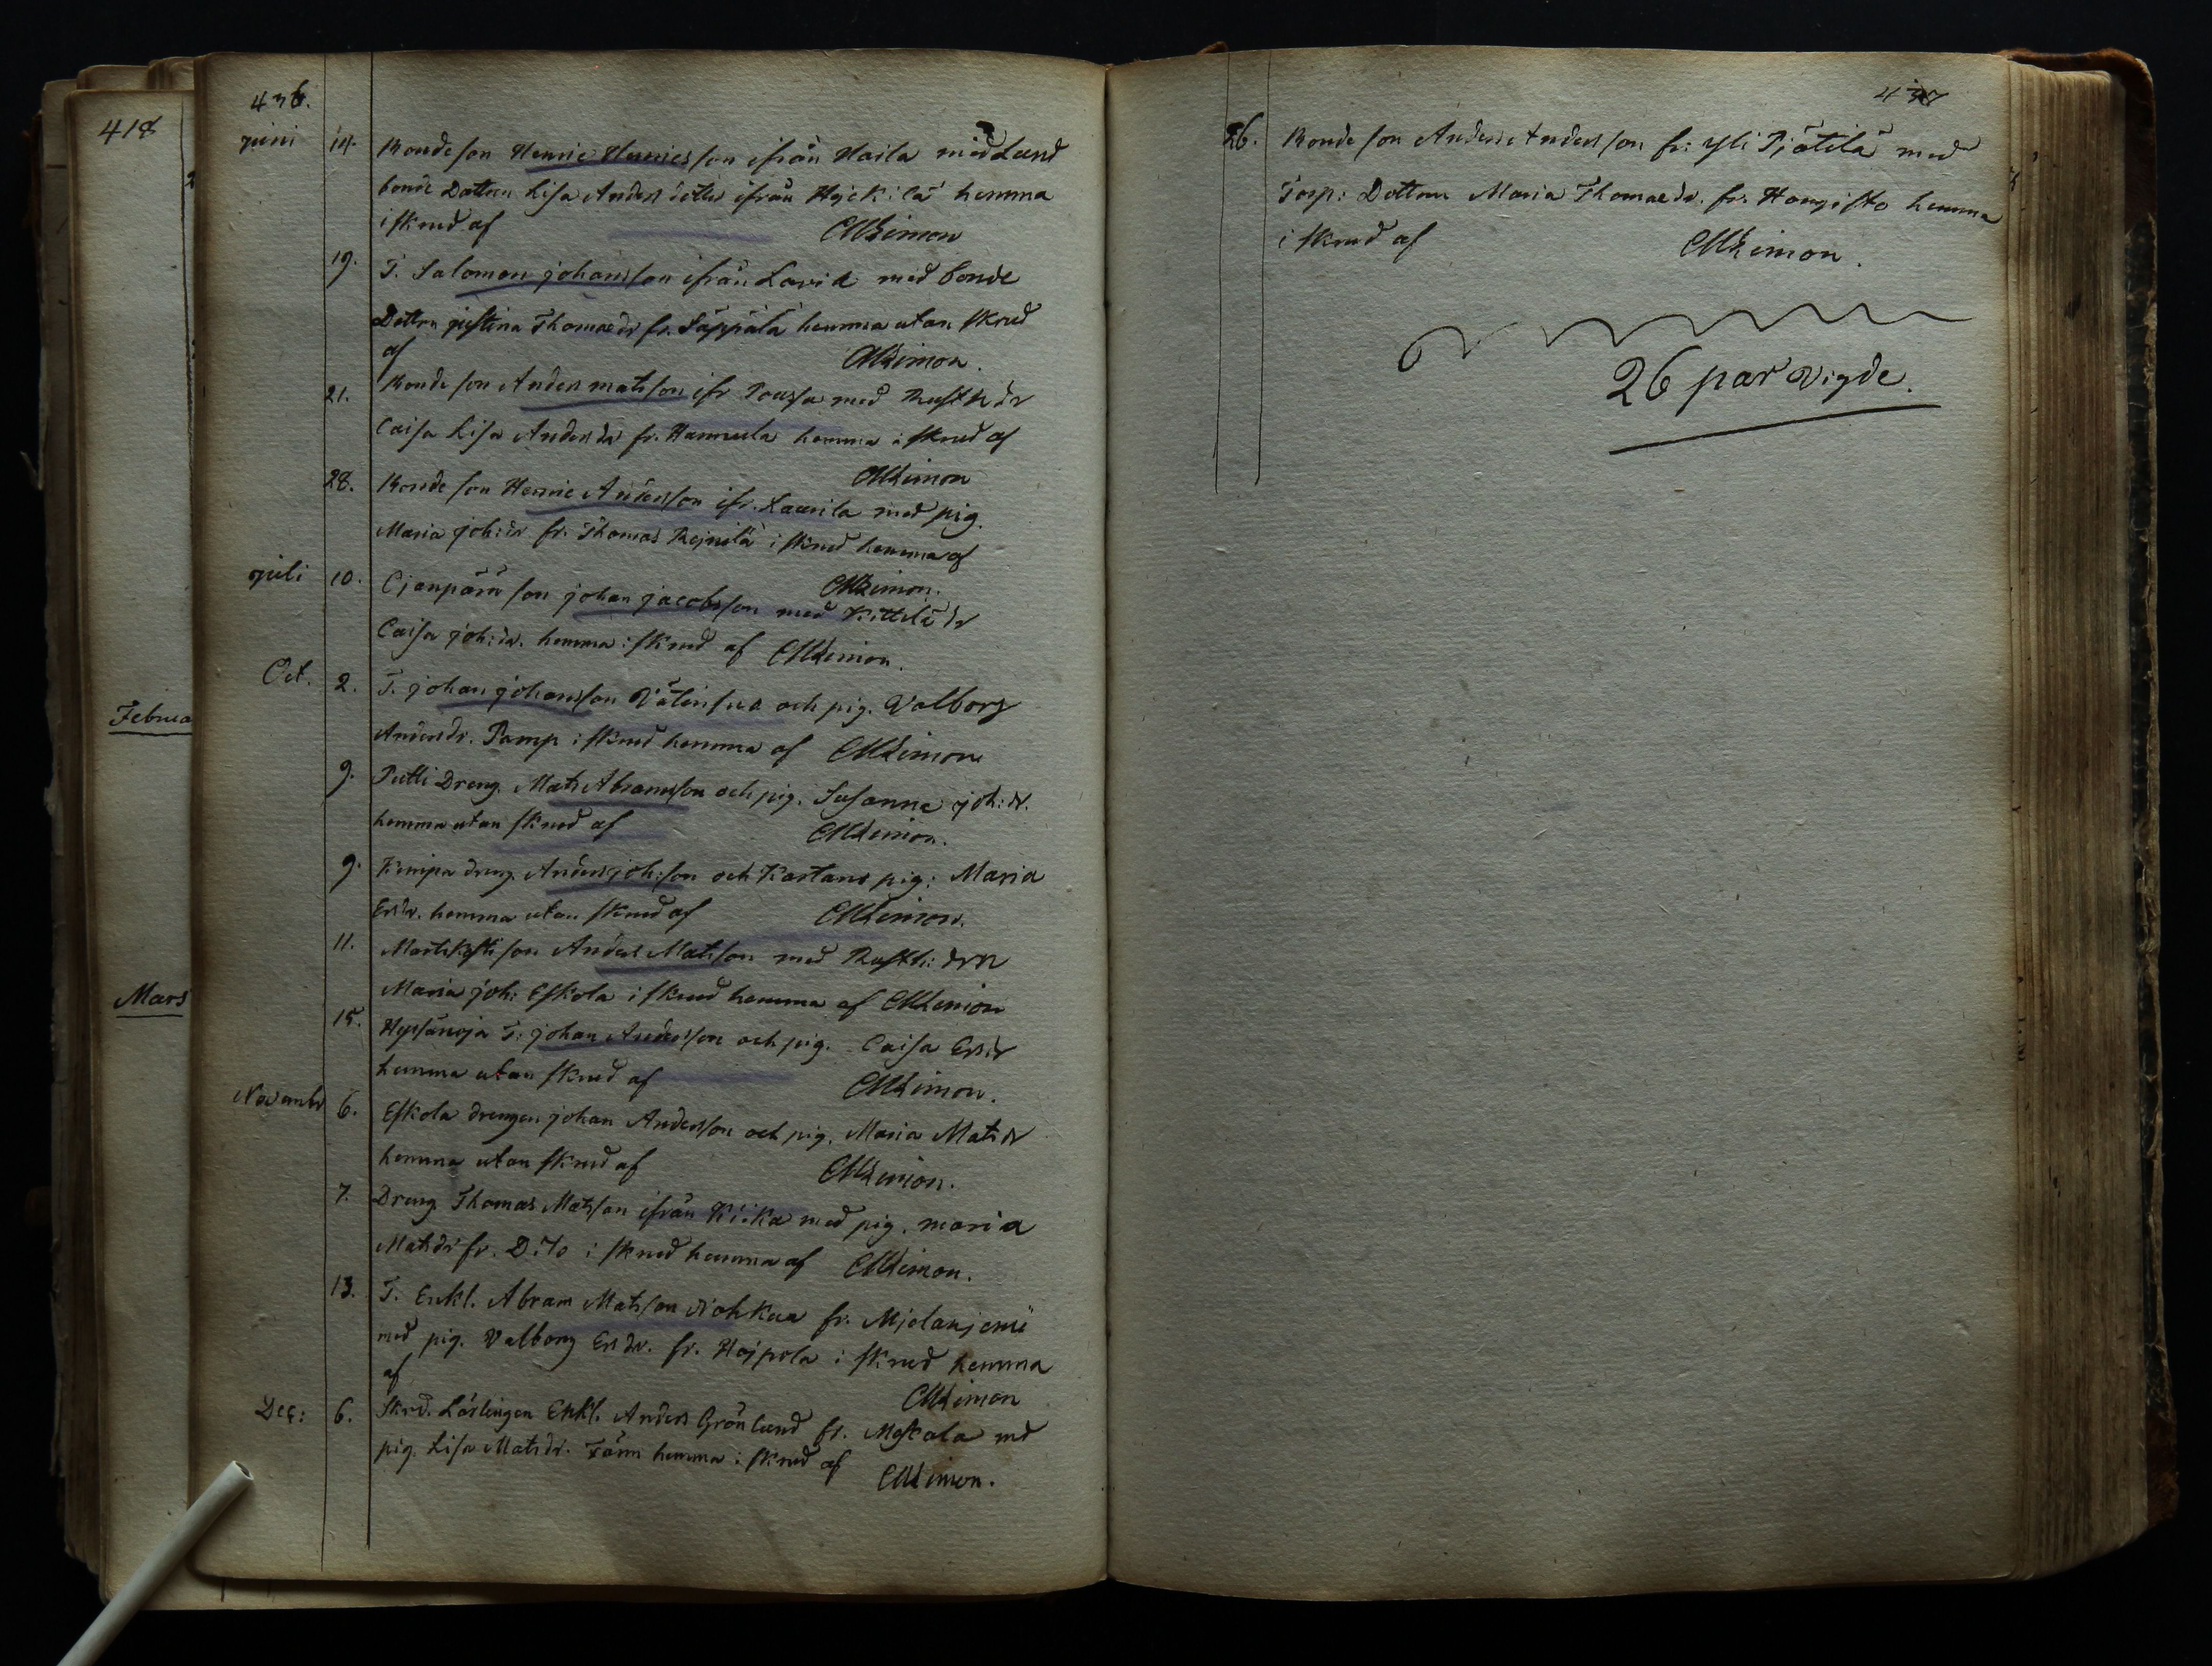 418
Februa
Mars
436.
Juni 14. Bonde son Henric Henricsson ifrån Haila med Lund
bonde Dottren Lisa Anders dotter ifrån Hyckilä hemma
i skrud af CMLimon
19. T. Salomon Johansson ifrån Lavia med bonde
Dottrn Justina Thomædr fr. Säppälä hemma utan skrud
af CMLimon.
21. Bonde son Anders Matsson ifr Poussa med Rusth dr
Caisa Lisa Andersdr fr. Hannula hemma i skrud af
CMLimon
28. Bonde son Henric Andersson ifr. Laurila med pig.
Maria Joh:dr fr. Thomas Rejnilä i skrud hemma af
CMLimon.
Juli 10. Ojanpärä son Johan Jacobsson med Kittilä dr
Caisa Joh:dr. hemma i skrud af CMLimon.
Oct. 2. T. Johan Johansson och pig. Valborg
Andersdr. Pamp i skrud hemma af CMLimon
9. Putli Dreng. Mats Abramsson och pig. Susanna Joh:dr.
hemma utan skrud af CMLimon.
9. Knipa dreng. Anders Joh:son och Kartano pig: Maria
Ersdr. hemma utan skrud af CMLimon.
11. son Anders Matsson med Rusth: drn
Maria Joh: Eskola i skrud hemma af CMLimon
15. T: Johan Andersson och pig. Caisa Ersdr
hemma utan skrud af CMLimon.
Novembr 6. Eskola drengen Johan Andersson och pig. Maria Matsdr
hemma utan skrud af CMLimon.
7. Dreng Thomas Matsson ifrån Kiika med pig. Maria
Matsdr fr. Dito i skrud hemma af CMLimon.
13. T. Enkl. Abram Matsson Nohkua fr. Mjolanjemi
med pig. Valborg Ersdr. fr. Hojpola i skrud hemma
af CMLimon
Dec: 6. Skrd. Löslingen Enkl. Anders Grönlund fr. Meskala md
pig. Lisa Matsdr. Törn hemma i skrud af
CMLimon.
437
26. Bonde son Anders Andersson fr: Yli Pjötilä med
Torp: Dottren Maria Thomædr. fr. Hongisto hemma
i skrud af CMLimon.
26 par vigde.